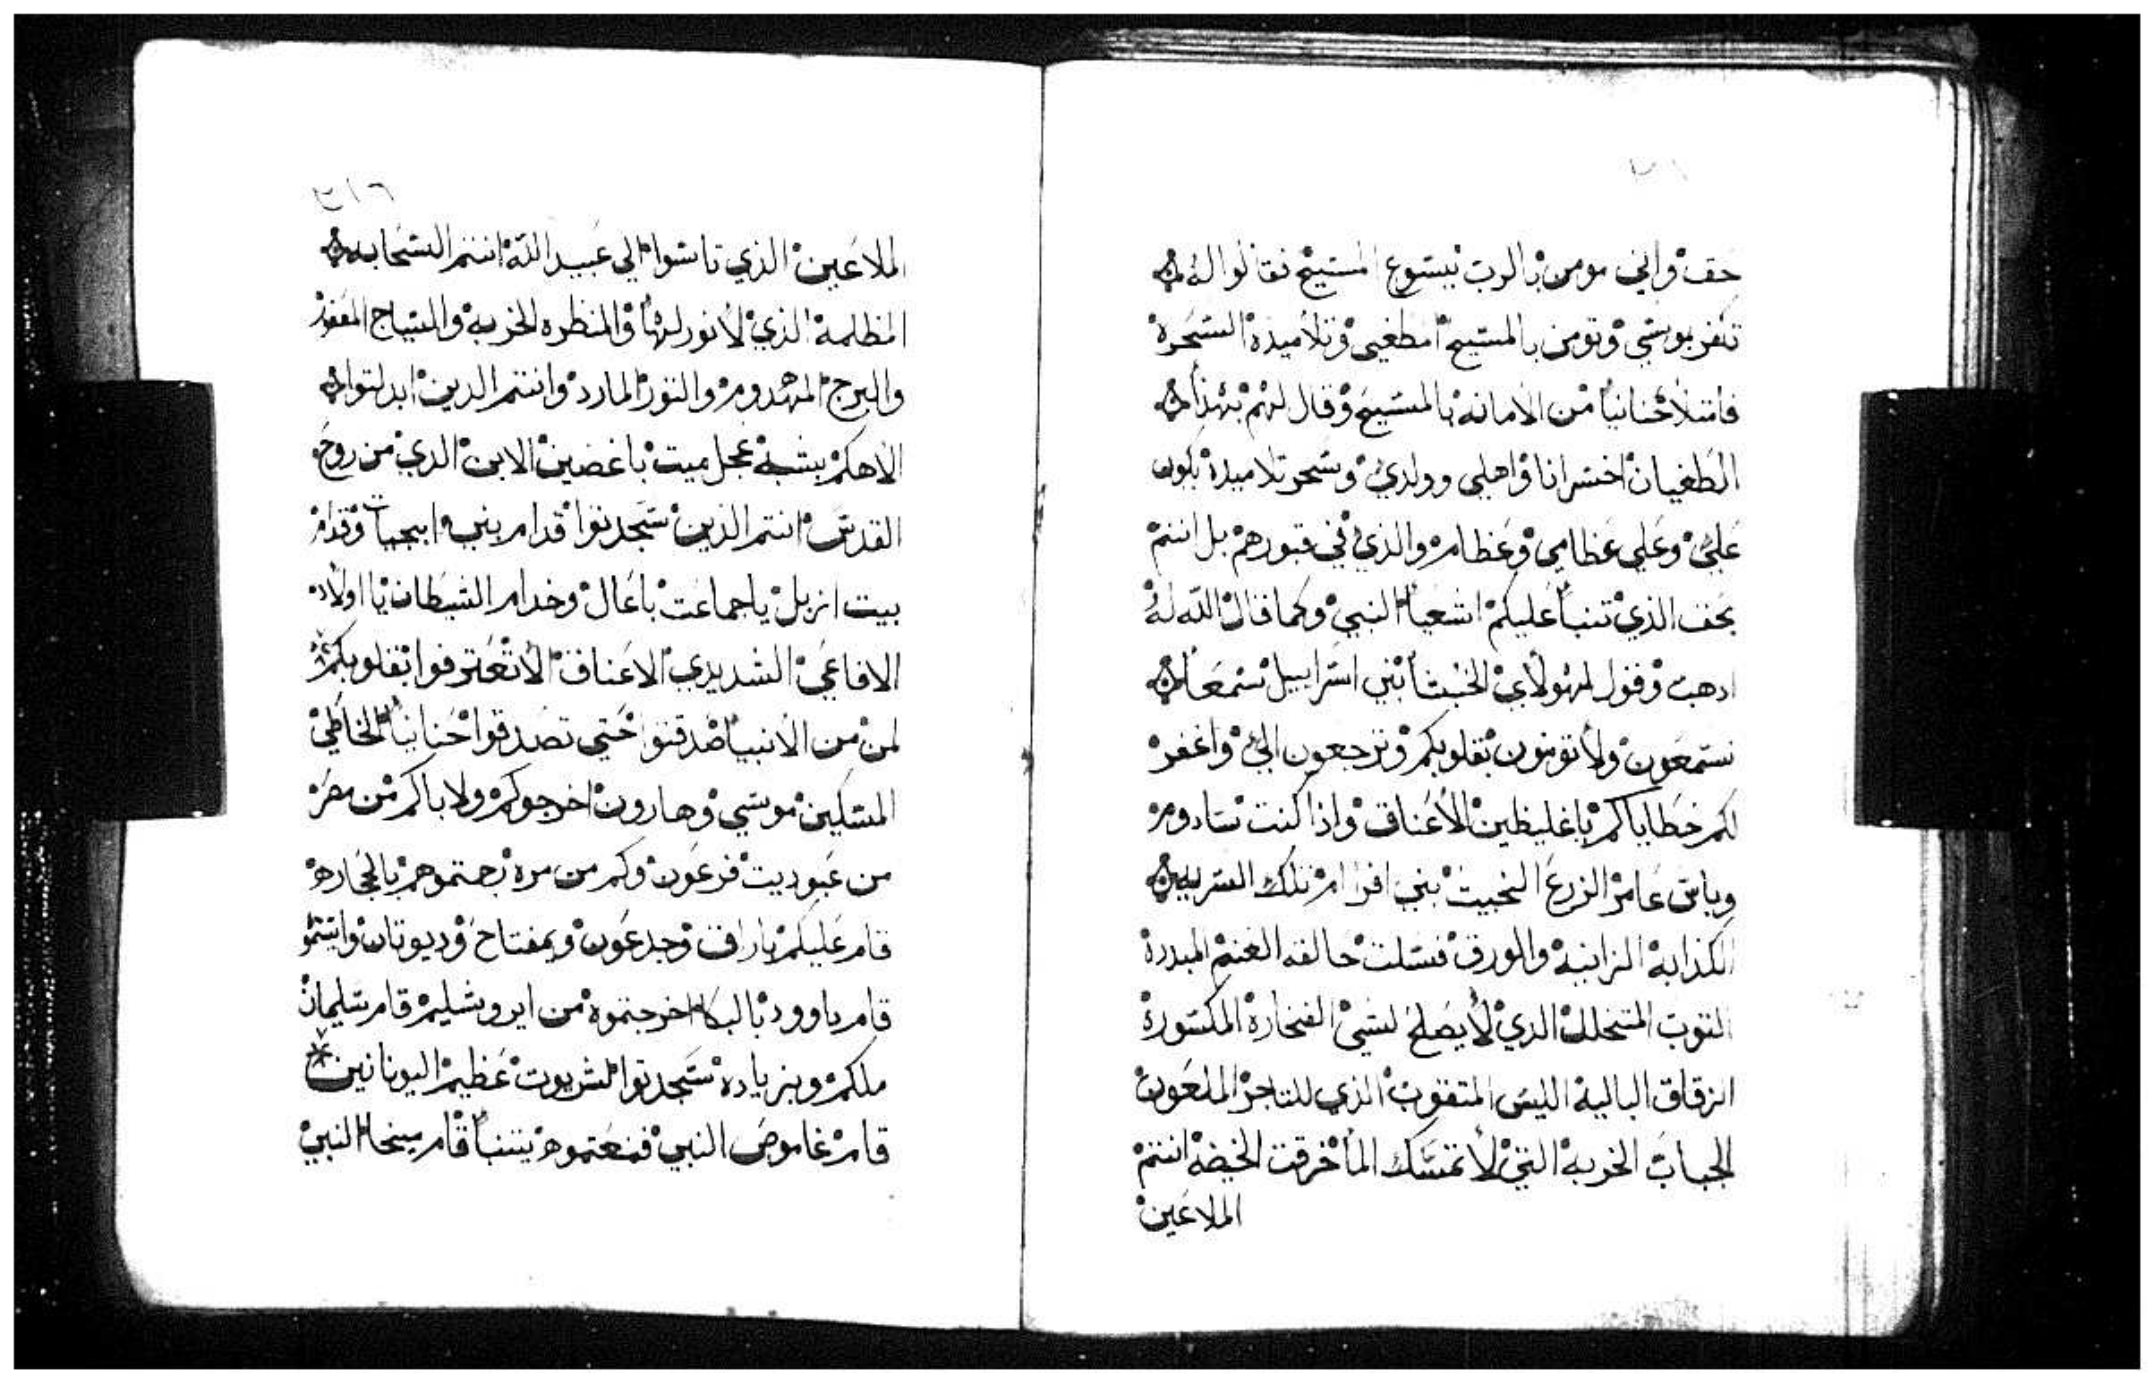 حق واني مومن بالرب يسوع المسيح فقالوا له
تكفر بموسي وتومن بالمسيح المطغيي وتلاميده السحرة
فامتلا حنانيا من الامانه بالمسيح وقال لهم بهذا
الطغيان اخسر انا واهلي وولدي وسحر تلاميدة يكون
علي وعلي عظامي وعظام والذي في قبورهم بل انتم
بحق الذي تنبا عليكم اشعيا النبي وكما قال الله له
ادهب وقول لهولاي الخبثا بني اسراييل سمعا
تستمعون ولا تومنون بقلوبكم وترجعون الي واغفر
لكم خطاياكم ياغليظين الاعناق واذا كنت سادوم
وياس عامر الزرع النخيت بني افرام تلك السريه
الكذابة الزانية والورق فسلت حالفه الغنم المبددة
التوب المتحلل الذي لا يصلح لشي الفخارة المكسورة
الزقاق البالية الليس المتقوب الذي للتاجر الملعون
الجباب الخربة التي لا تمسك الما خرقت الحيضة انتم
الملاعين
٢١٦
الملاعين الذي تاسوا الي عبيد الله انتم السحابه
المظلمة الذي لا نور لها والمنظره الخربه والسياج
والبرج المهدوم والتور المارد وانتم الدين ابدلتوا
الاهكم بشبه عجل ميت ياغضين الابن الدي من روح
القدس انتم الذين سجدتوا قدام بني وقدام
بيت ازبل ياجماعت باعال وخدام الشيطان يا اولاد
الافاعي الشديدي الاعناق الا تعترفوا بقلوبكم
لمن من الانبيا صدقتوا حتي تصدقوا حنانيا الخاطي
المسكين موسي وهارون اخرجوكم ولاباكم من مصر
من عبوديت فرعون وكم من مره رجمتموهم بالحجاره
قام عليكم باراق وجدعون ويمفتاح
قام داوود بالبكا اخرجتموة من ايروشليم قام سليمان
ملكم وبزياده سجدتوا عظيم اليونانين
قام عاموص النبي فمنعتموه يتنبا قام ميخا النبي